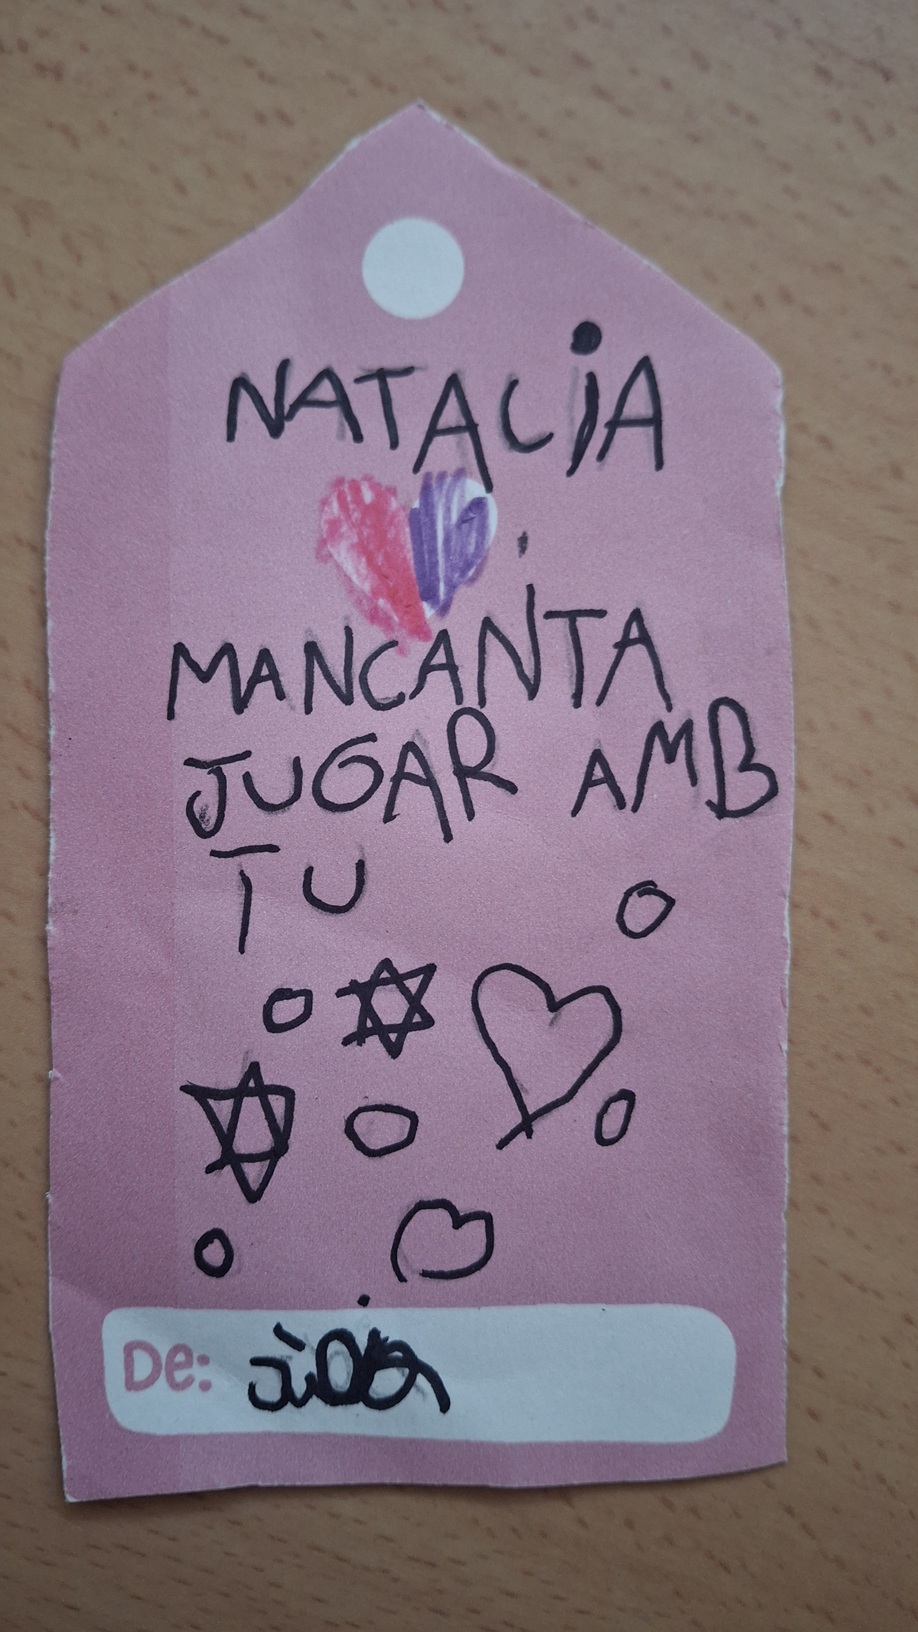 NATALiA
MANCANTA
JUGAR AMB
TU
De: